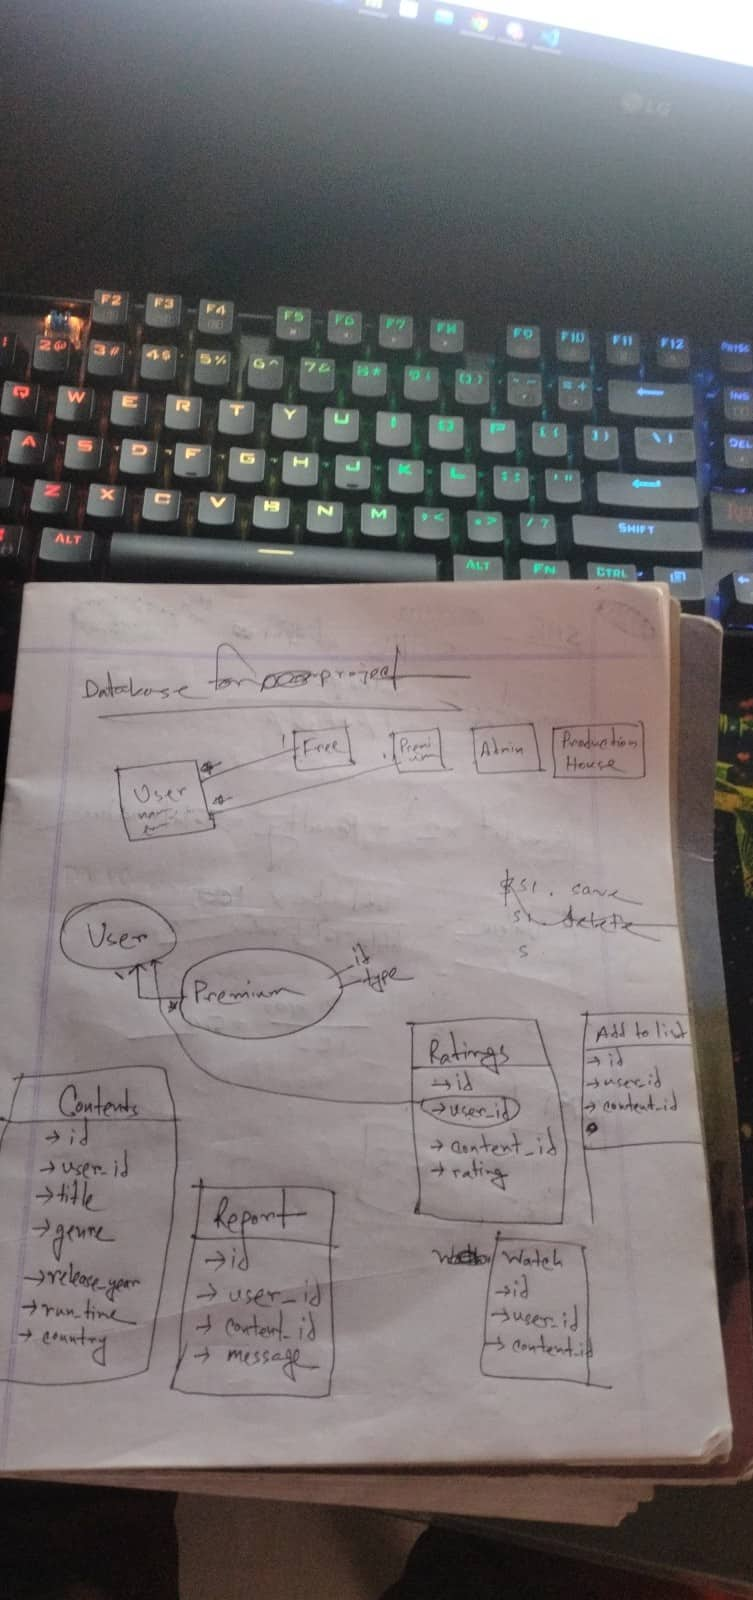 LG
F2 F3 F4 F5 F6 F7 F8 F9 F10 F11 F12
2@ 3# 4$ 5% 6^ 7& 8*
INS
Q W E R T Y U I O P
DEL
A S D F G H J K L
Z X C V B N M
SHIFT
ALT
ALT FN CTRL
Database for project
Free
Premium
Admin
Production
House
User
User
Premium
id
type
s1. save
s1. delete
s
Ratings
→ id
→ user_id
→ content_id
→ rating
Add to list
→ id
→ user_id
→ content_id
Contents
→ id
→ user_id
→ title
→ genre
→ release_year
→ run_time
→ country
Report
→ id
→ user_id
→ content_id
→ message
Watch
→ id
→ user_id
→ content_id